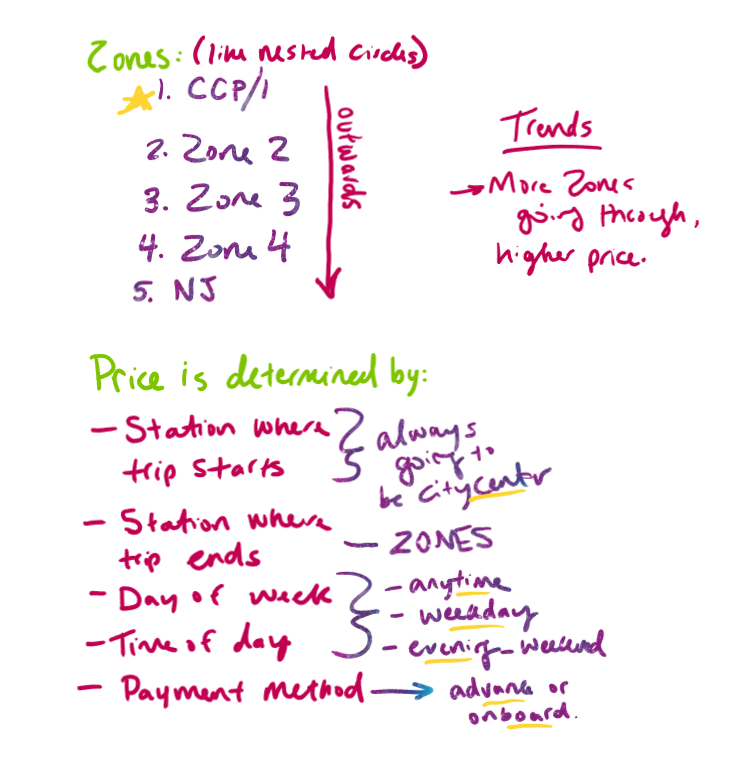 Zones: (like nested circles)
1. CCP/1
2. Zone 2
3. Zone 3
4. Zone 4
5. NJ
outwards
Trends
→ More Zones
going through,
higher price.
Price is determined by:
- Station where
trip starts
always
going to
be city center
- Station where
trip ends
- ZONES
- Day of week
- Time of day
- anytime
- weekday
- evening_weekend
- Payment method →
advance or
onboard.